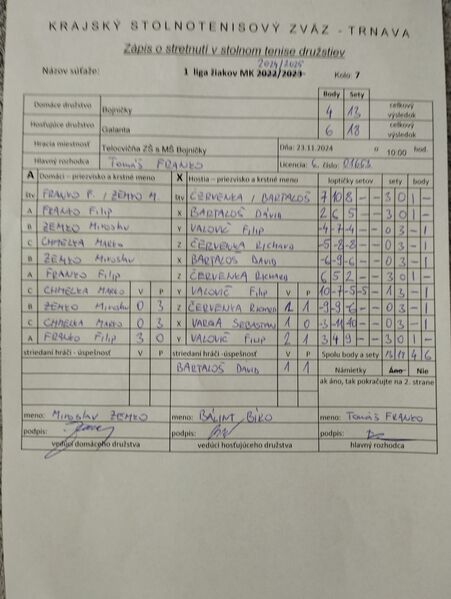 KRAJSKÝ STOLNOTENISOVÝ ZVÄZ - TRNAVA
Zápis o stretnutí v stolnom tenise družstiev
2024/2025
Názov súťaže: 1 liga žiakov MK 2022/2023 Kolo: 7
Body Sety
Domáce družstvo Bojničky 4 13 celkový výsledok
Hosťujúce družstvo Galanta 6 18 celkový výsledok
Hracia miestnosť Telocvičňa ZŠ s MŠ Bojničky Dňa: 23.11.2024 o 10:00 hod.
Hlavný rozhodca Tomáš FRANKO Licencia: číslo:
A Domáci - priezvisko a krstné meno X Hostia - priezvisko a krstné meno loptičky setov sety body
štv FRANKO F. / ZEMKO M. štv ČERVENKA / BARTALOŠ 7 10 8 - - 3 0 1 -
A FRANKO Filip X BARTALOŠ DÁVID 2 6 5 - - 3 0 1 -
B ZEMKO Miroslav Y VALOVIČ Filip -4 -7 -4 - - 0 3 - 1
C CHMELKA MARKO Z ČERVENKA RICHARD -5 -8 -8 - - 0 3 - 1
B ZEMKO Miroslav X BARTALOŠ DAVID -6 -9 -6 - - 0 3 - 1
A FRANKO Filip Z ČERVENKA RICHARD 6 5 2 - - 3 0 1 -
C CHMELKA MARKO V P Y VALOVIČ Filip V P 10 -7 -5 -5 - 1 3 - 1
B ZEMKO Miroslav 0 3 Z ČERVENKA 1 -9 -9 -6 - - 0 3 - 1
C CHMELKA MARKO 0 3 X VARGA SEBASTIAN 1 0 - - 0 3 - 1
A FRANKO Filip 3 0 Y VALOVIČ Filip 2 1 3 4 9 - - 3 0 1 -
striedaní hráči - úspešnosť V P striedaní hráči -úspešnosť V P Spolu body a sety 13 4 6
BARTALOŠ DAVID 1 1 Námietky Áno Nie
ak áno, tak pokračujte na 2. strane
meno: Miroslav ZEMKO meno: BÁLINT BÍRO meno: Tomáš FRANKO
podpis: podpis: podpis:
vedúci domáceho družstva vedúci hosťujúceho družstva hlavný rozhodca